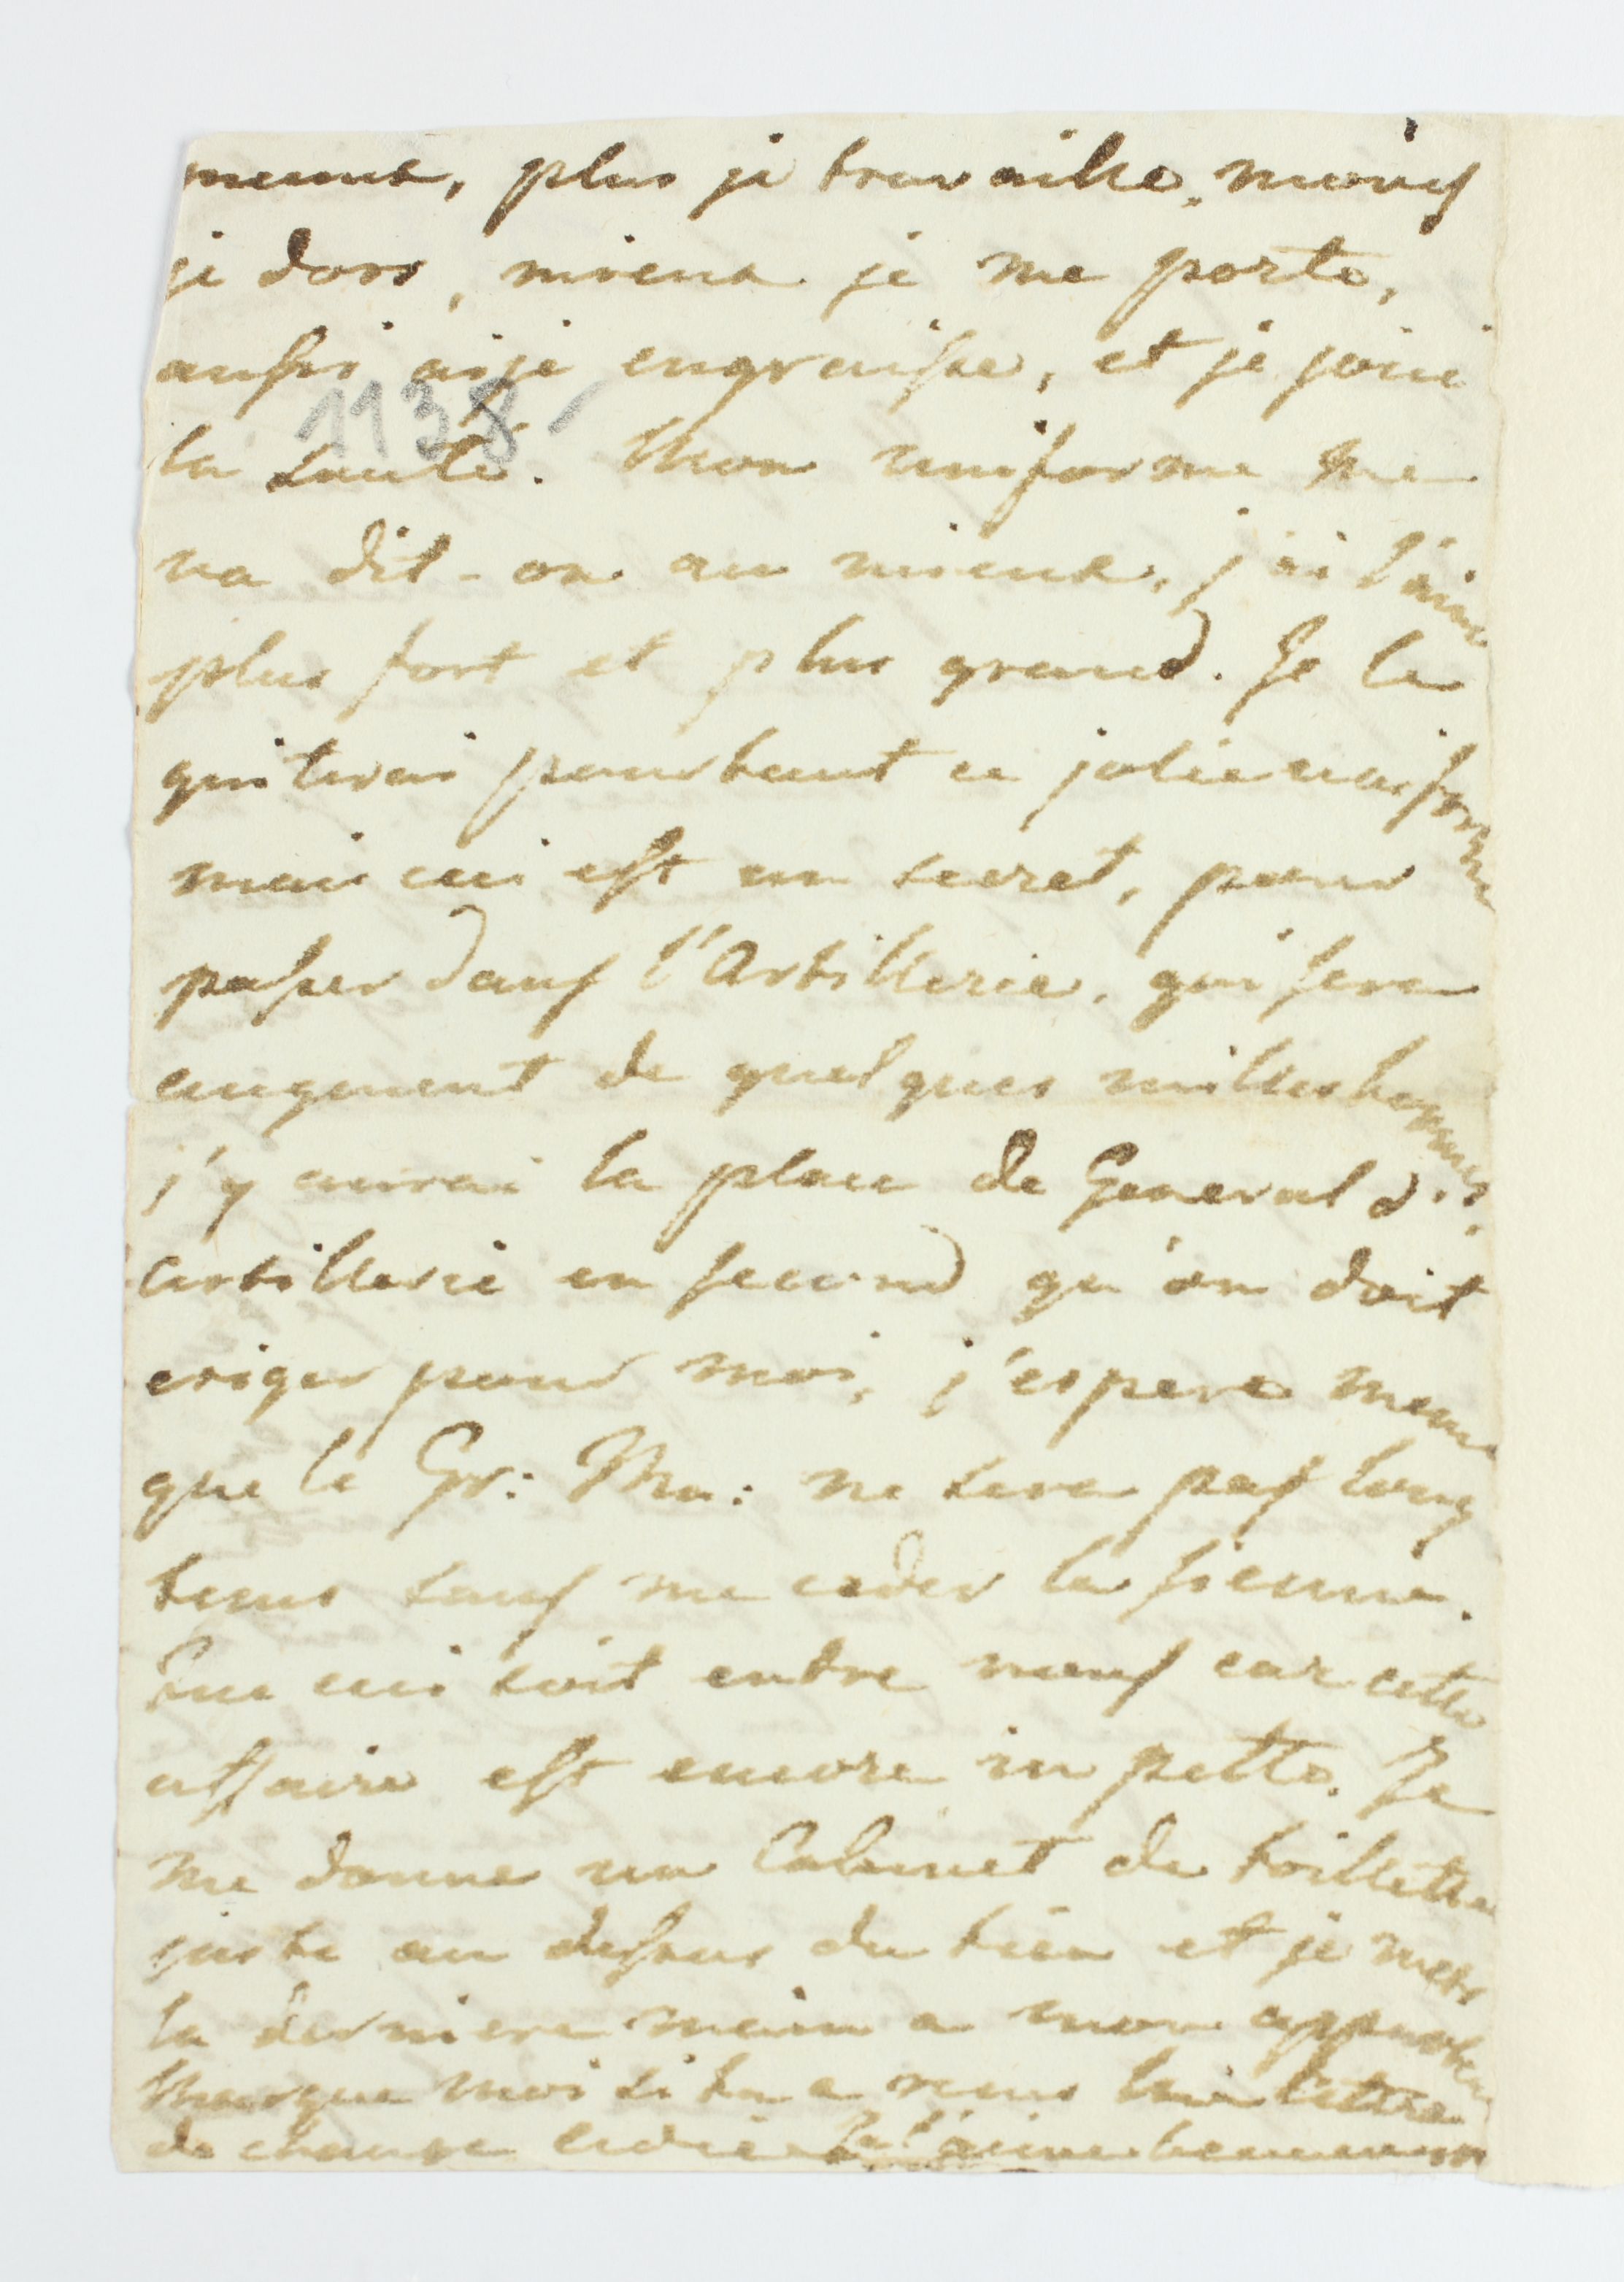 meuut, plus je travaille, moins
je dors, mieux je me porte,
aussi aije engraisse, et je joui
1138
la santé. Mon uniforme me
va dit-on au mieux, j'ai l'air
plus fort et plus grand. Je le
quiterai pourtant ce jolie uniforme
mais ceci est un secret, pour
passer dans l'Artillerie, qui sera
augment de quelques milles hommes,
j'y aurai la place de General d'
artillerie en second qu'on doit
eriger pour moi, j'espere meme
que le Gr: Ma: ne sera pas long
tems sans me ceder la sienne.
Que ceci soit entre nous car cette
affaire est encore in petto. Je
me donne un Cabinet de toillette
juste au dessus du tien et je mets
la derniere main a mon
Marque moi si tu a recus la lettre
de change adieu Je t'aime beaucoup